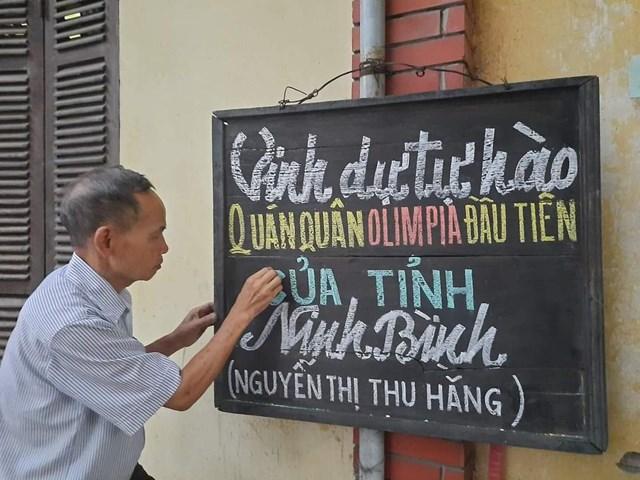 Vinh dự tự hào
QUÁN QUÂN OLIMPIA ĐẦU TIÊN
CỦA TỈNH
Ninh Bình
(NGUYỄN THỊ THU HẰNG)